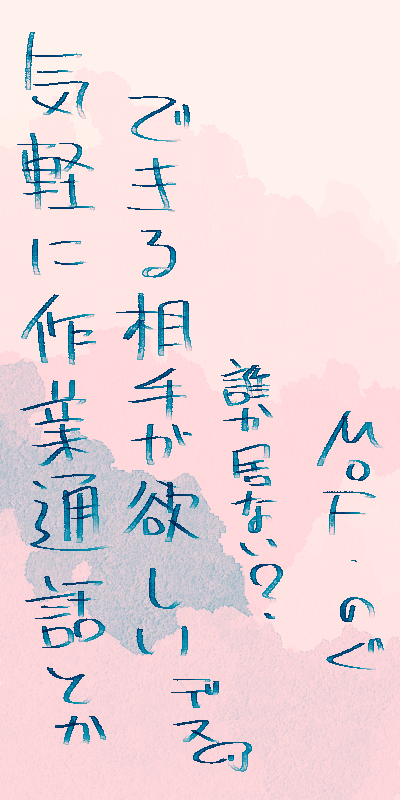 気軽に作業通話とか
できる相手が欲しい
デス
誰か居ない?